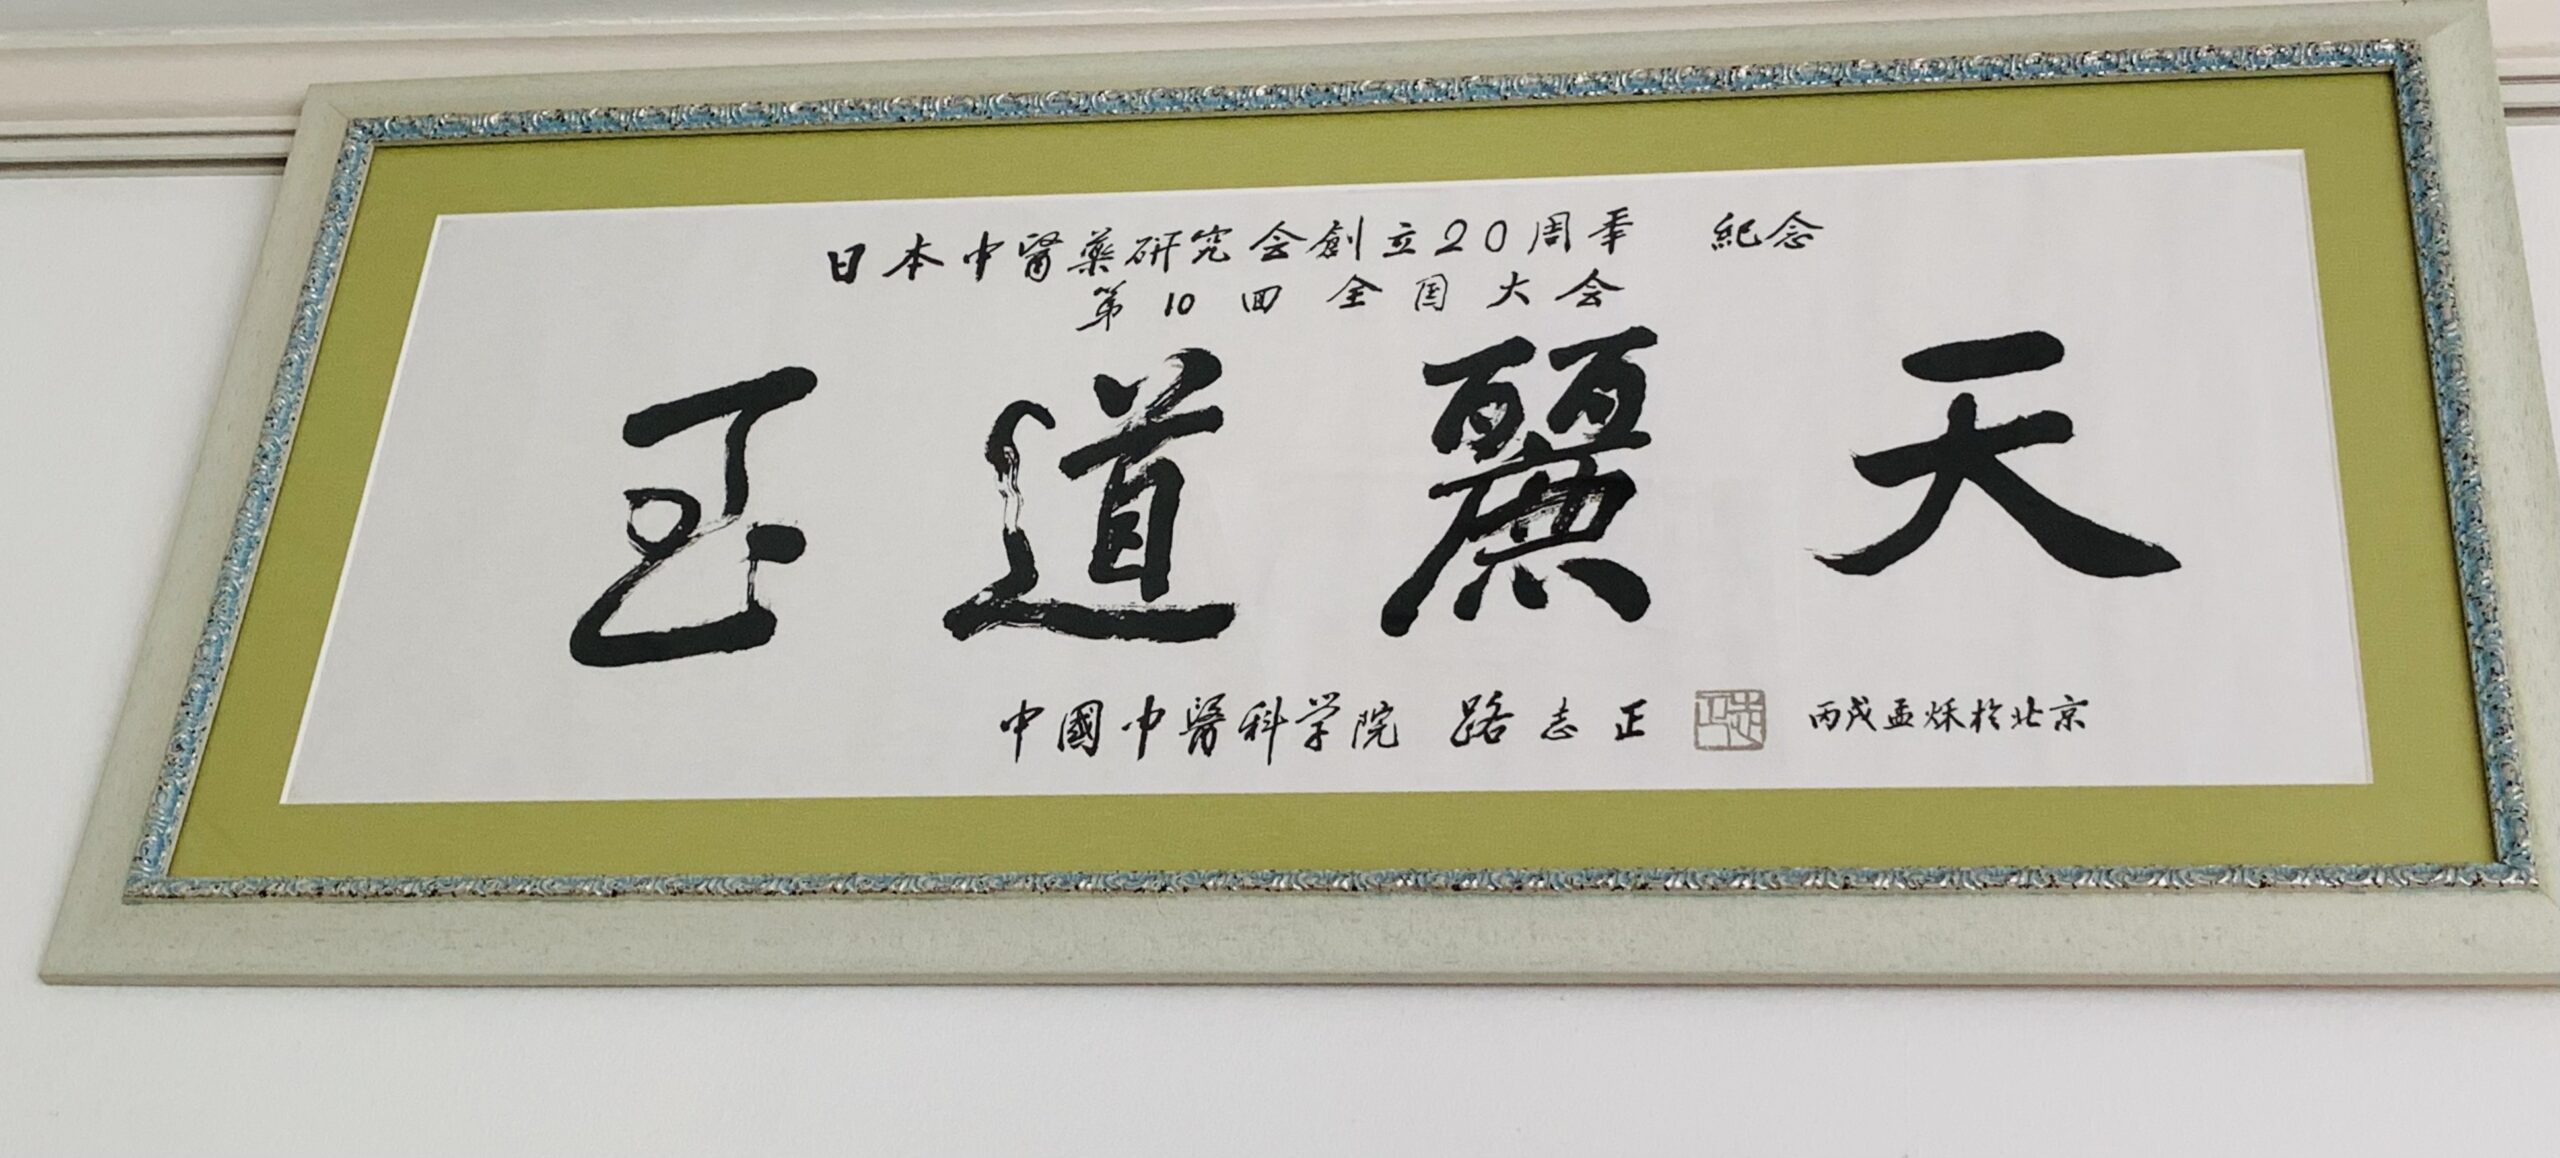 日本中醫薬研究会創立20周年 紀念
第10回全国大会
至道麗天
中國中醫科学院 路志正 丙戌孟秋於北京